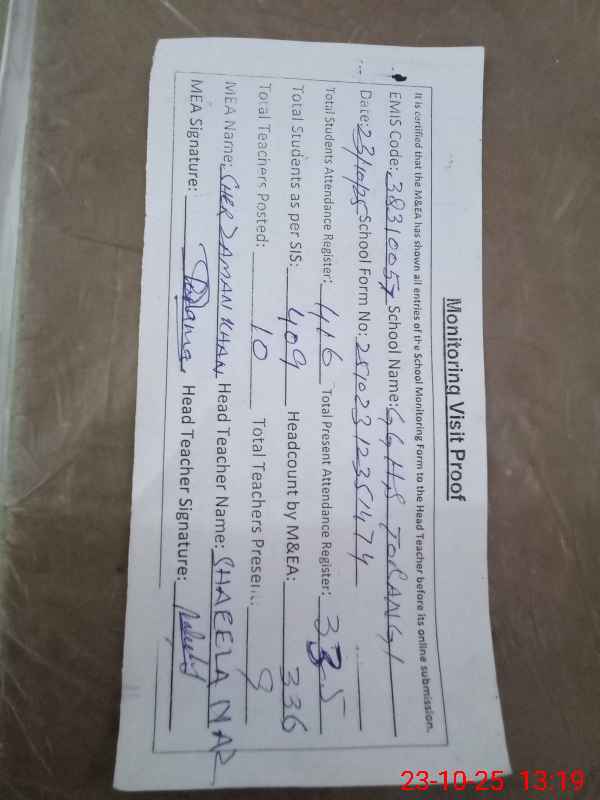 Monitoring Visit Proof
It is certified that the M&EA has shown all entries of the School Monitoring Form to the Head Teacher before its online submission.
EMIS Code: 38310057 School Name: GGHS TORANGI
Date: 23/10/25 School Form No: 25102312351474
Total Students Attendance Register: 416 Total Present Attendance Register: 335
Total Students as per SIS: 409 Headcount by M&EA: 336
Total Teachers Posted: 10 Total Teachers Present: 9
MEA Name: SHER ZAMAN KHAN Head Teacher Name: SHAKEELA NAZ
MEA Signature: Head Teacher Signature:
23-10-25 13:19